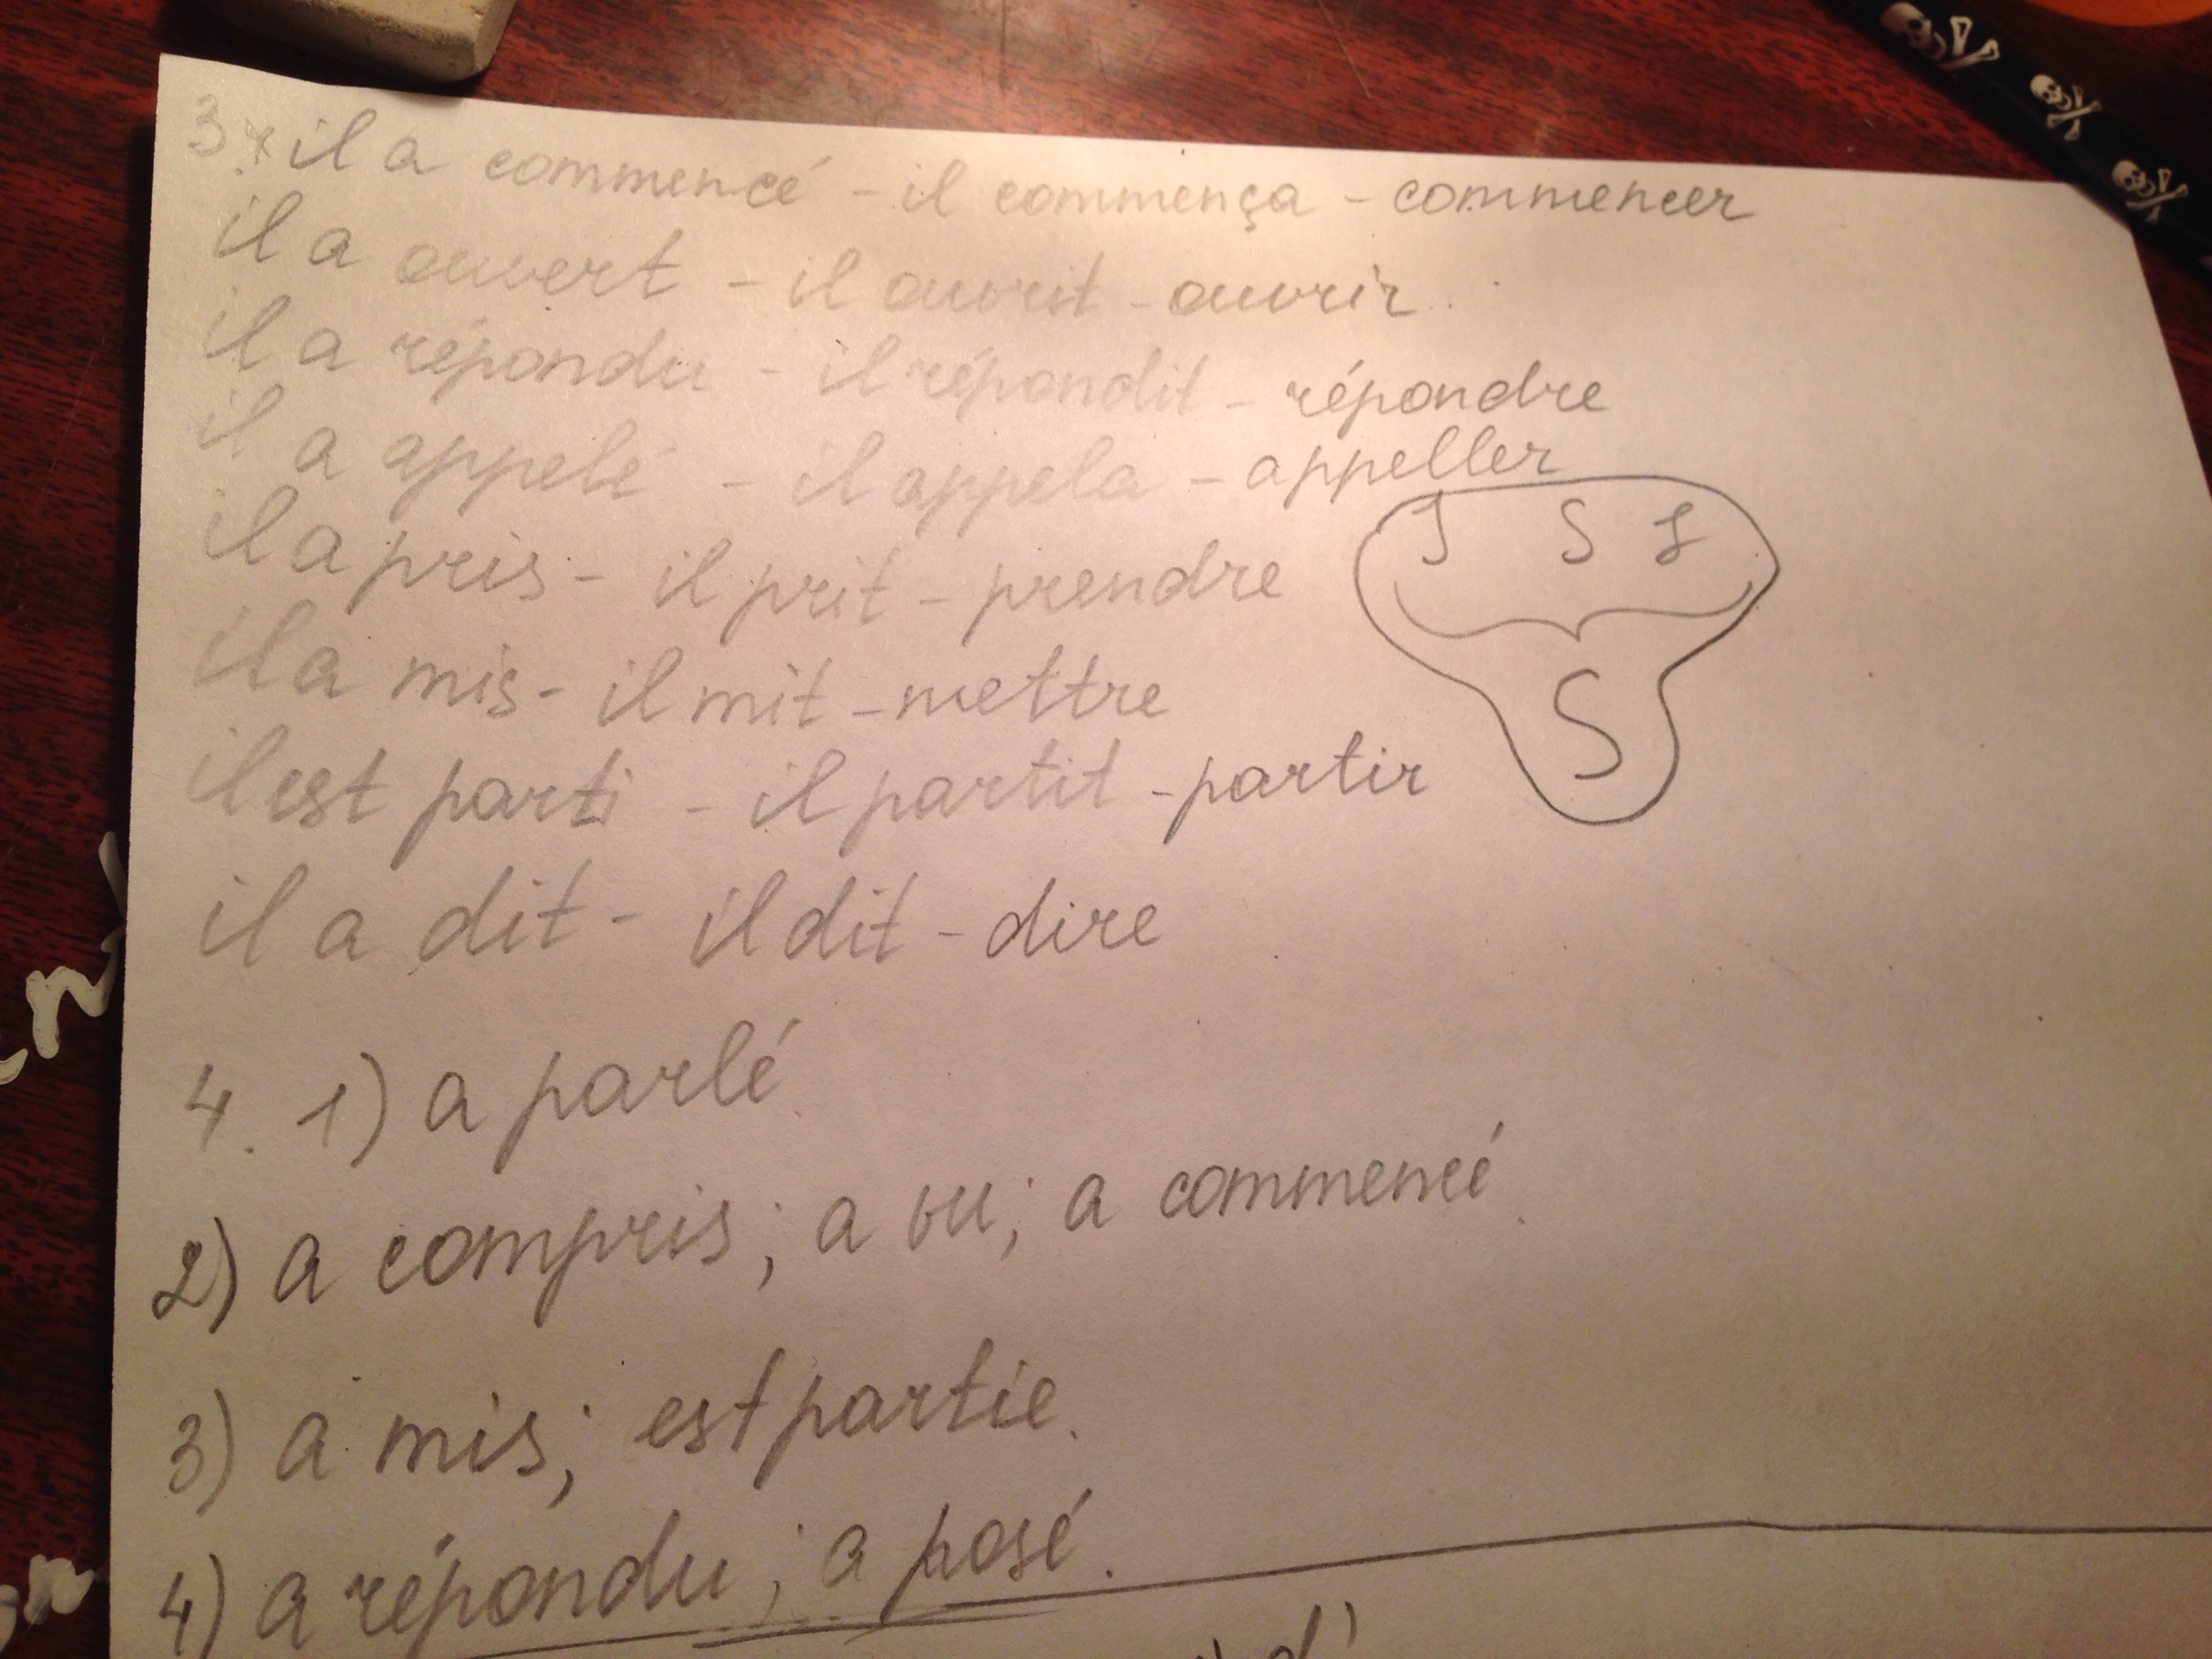 3. il a commencé - il commença - commencer
il a ouvert - il ouvrit - ouvrir
il a répondu - il répondit - répondre
il a appelé - il appela - appeller
il a pris - il prit - prendre
il a mis - il mit - mettre
il est parti - il partit - partir
il a dit - il dit - dire
S
S
4. 1) a parlé
2) a compris; a vu; a commencé.
3) a mis; est partie.
4) a répondu; a posé.